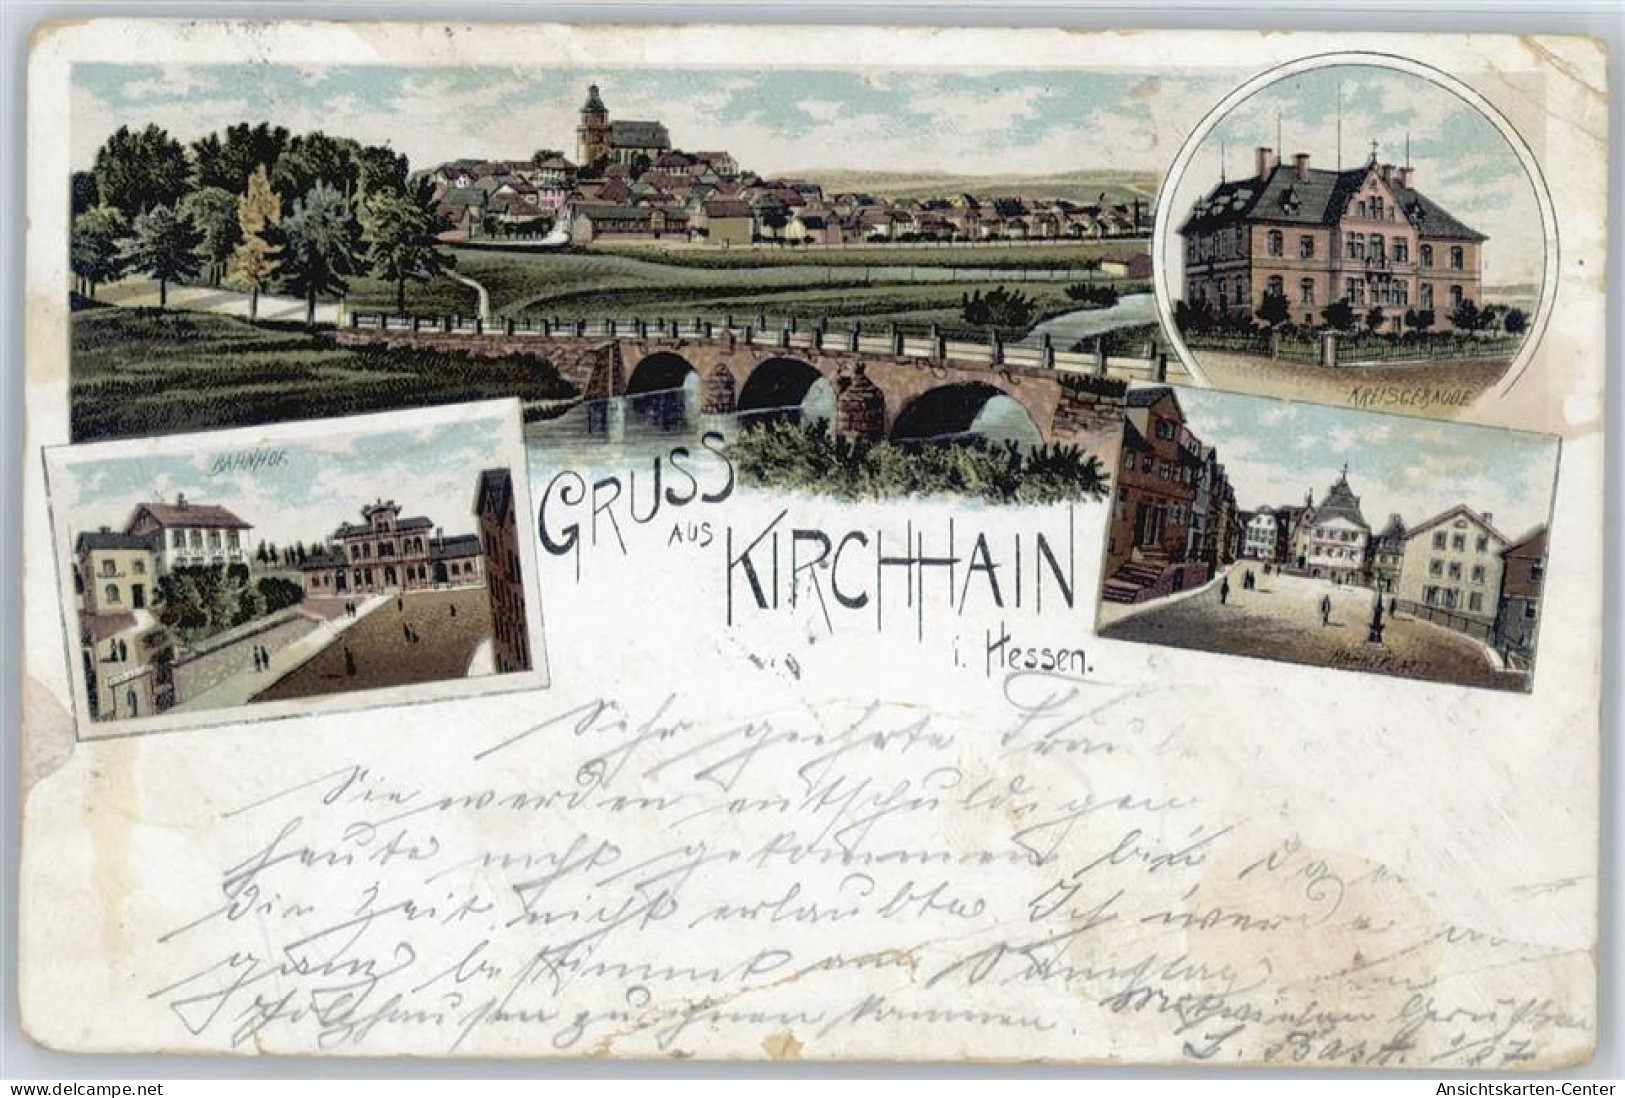 KREISGEBÄUDE
BAHNHOF.
GRUSS
AUS
KIRCHHAIN
i. Hessen.
MARKTPLATZ
Sehr geehrte Frau
Sie werden entschuldigen
heute nicht gekommen bin da
die Zeit nicht erlaubte. Ich werde
ganz bestimmt am Samstag
Holzhausen zu ihnen kommen.
Mit vielen Grüßen
L. Bast.
Ansichtskarten-Center